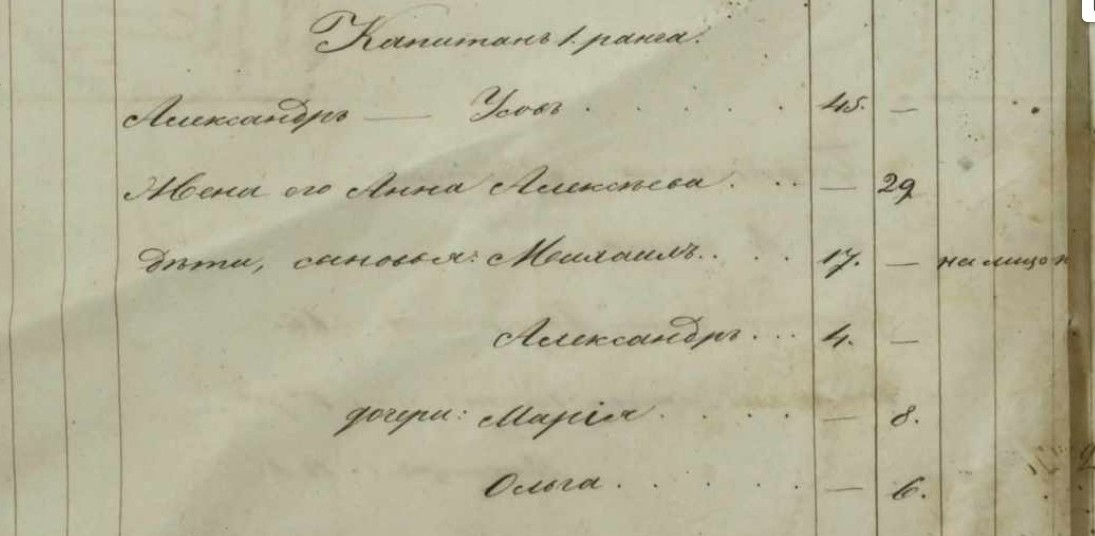 Капитанъ 1. ранга.
Александръ — Усовъ . . . . . 45. —
Жена его Анна Алексѣева . . . — 29
дѣти, сыновья: Михаилъ . . . 17. — на лицо
Александръ . . . 4. —
дочери: Марія . . . . — 8.
Ольга . . . . . — 6.